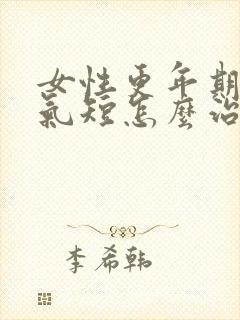 女性更年期
氣短怎麼治
李希韩